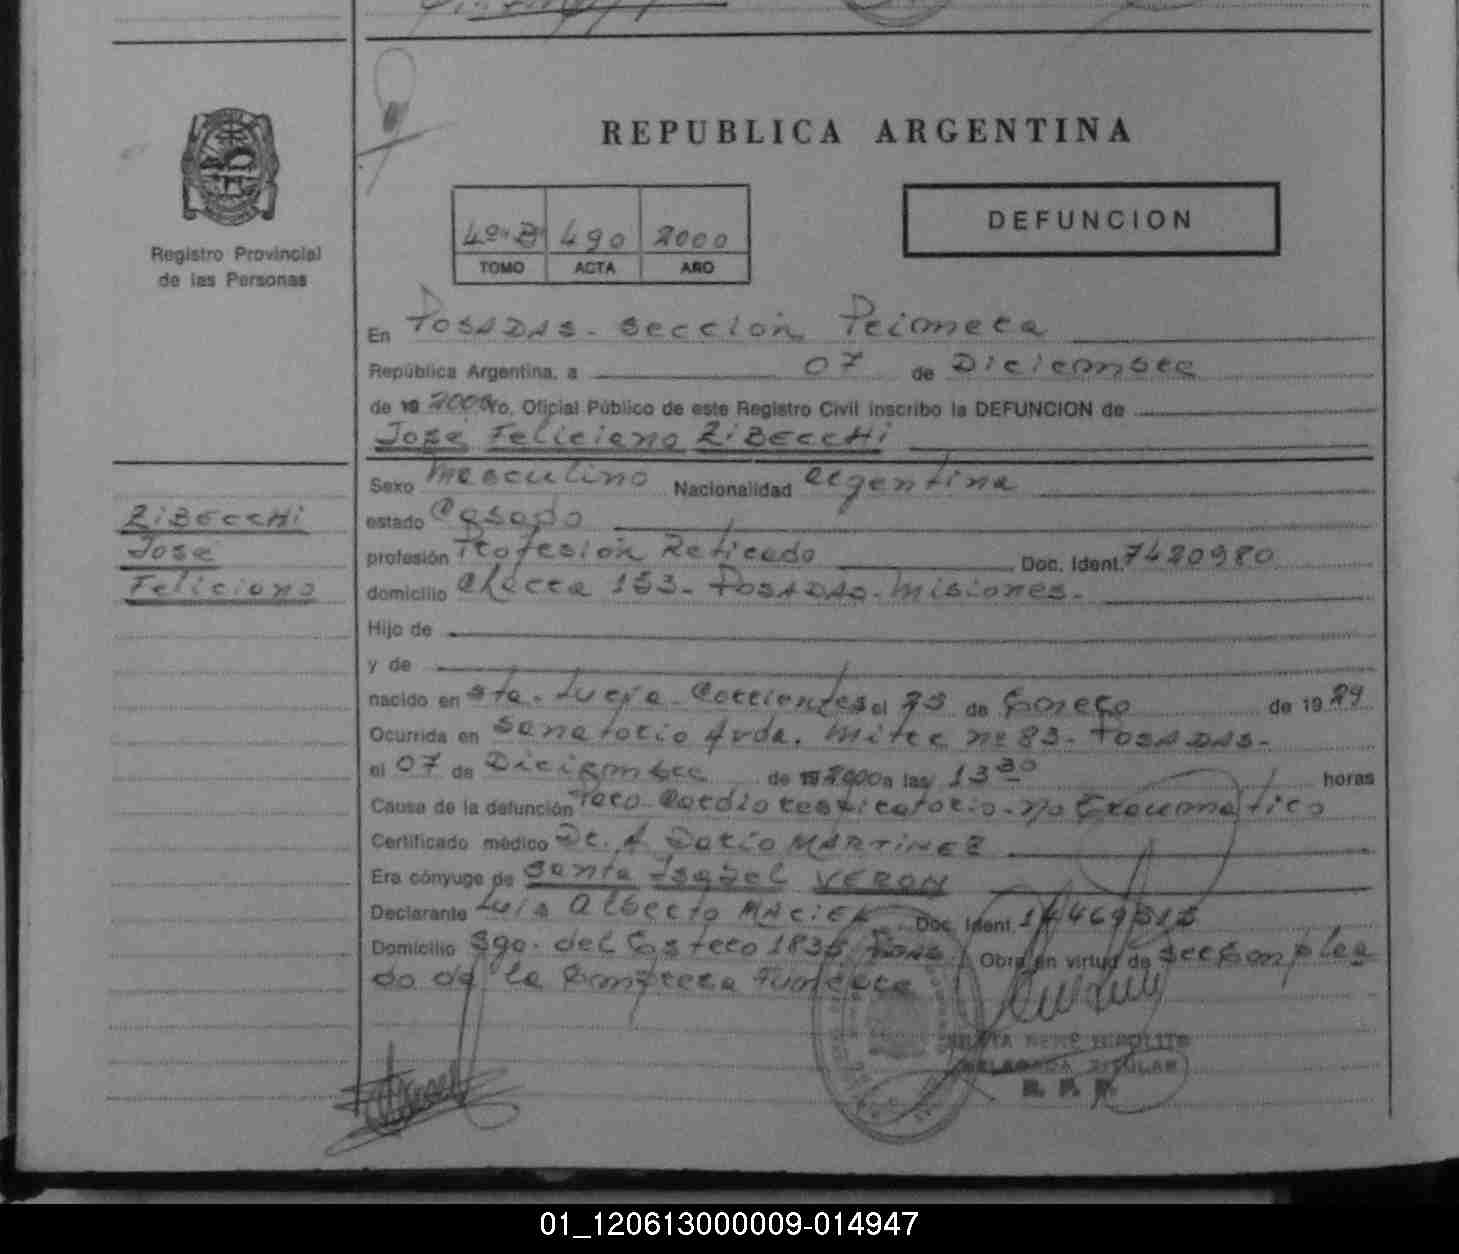 REPUBLICA ARGENTINA
DEFUNCION
4º"B" 490 2000
TOMO ACTA AÑO
Registro Provincial
de las Personas
En POSADAS - Sección Primera
República Argentina, a 07 de Diciembre
de 19 2000 Yo, Oficial Público de este Registro Civil inscribo la DEFUNCION de
José Feliciano RiBECCHi
RiBECCHi
José
Feliciano
Sexo Masculino Nacionalidad argentina
estado Casado
profesión Profesión Retirado Doc. Ident. 7420980
domicilio 153 - POSADAS - Misiones -
Hijo de
y de
nacido en Sta. Lucía - Corrientes el 23 de Enero de 19 29
Ocurrida en Sanatorio Avda. Mitre nº 83 - POSADAS -
el 07 de Diciembre de 19 2000 a las 13 30 horas
Causa de la defunción Paro Cardiorespiratorio - no traumático
Certificado médico Dr. A Darío MARTiNEZ
Era cónyuge de Santa Isabel VERON
Declarante Luis Alberto MACiEL Doc. Ident.
Domicilio Sgo. del Estero 1835 Obra en virtud de ser Emplea
do de la Empresa Funebre
RENE HIPOLITO
DELEGADA TITULAR
R. P. P.
01_120613000009-014947